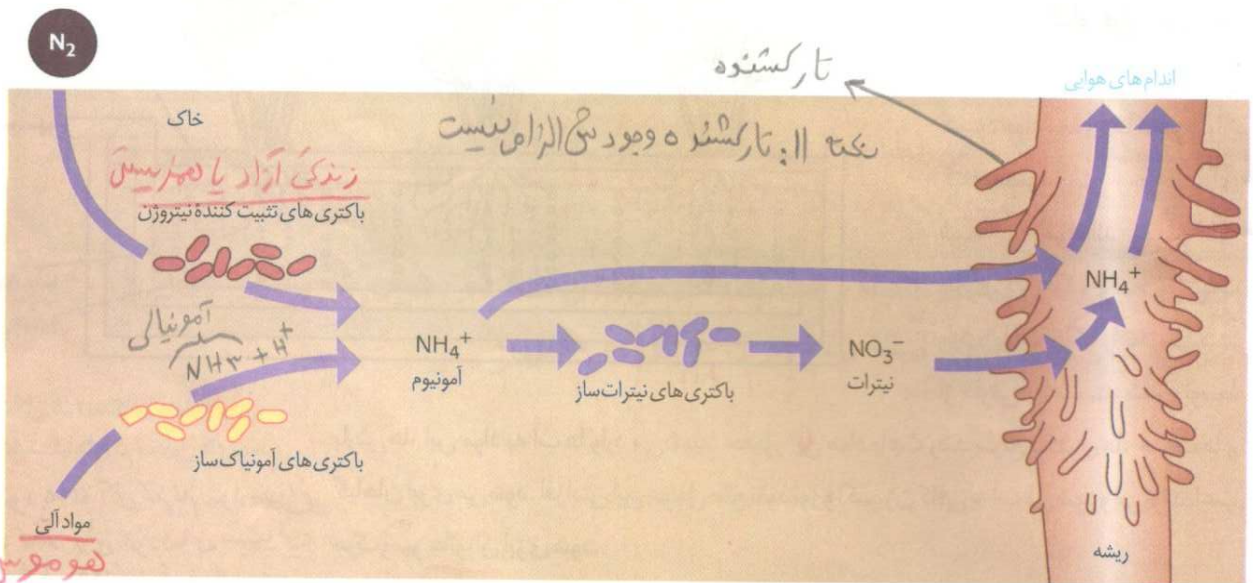 N₂
تارکشنده
اندام‌های هوایی
خاک
نکته ۱۱: تارکشنده وجودش الزامی نیست
زندگی آزاد یا همزیستی
باکتری‌های تثبیت کنندهٔ نیتروژن
NH₄⁺
آمونیاک
NH₃ + H⁺
NH₄⁺
آمونیوم
باکتری‌های نیترات‌ساز
NO₃⁻
نیترات
باکتری‌های آمونیاک‌ساز
مواد آلی
هوموس
ریشه